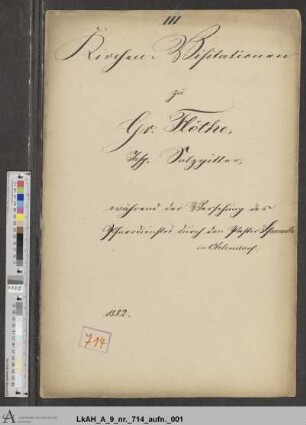 III
Kirchen-Visitationen
zu
Gr. Flöthe,
Insp. Salzgitter,
während der Versehung des
Pfarrdienstes durch den Pastor
in Ohlendorf.
1882.
714
LkAH_A_9_nr._714_aufn._001